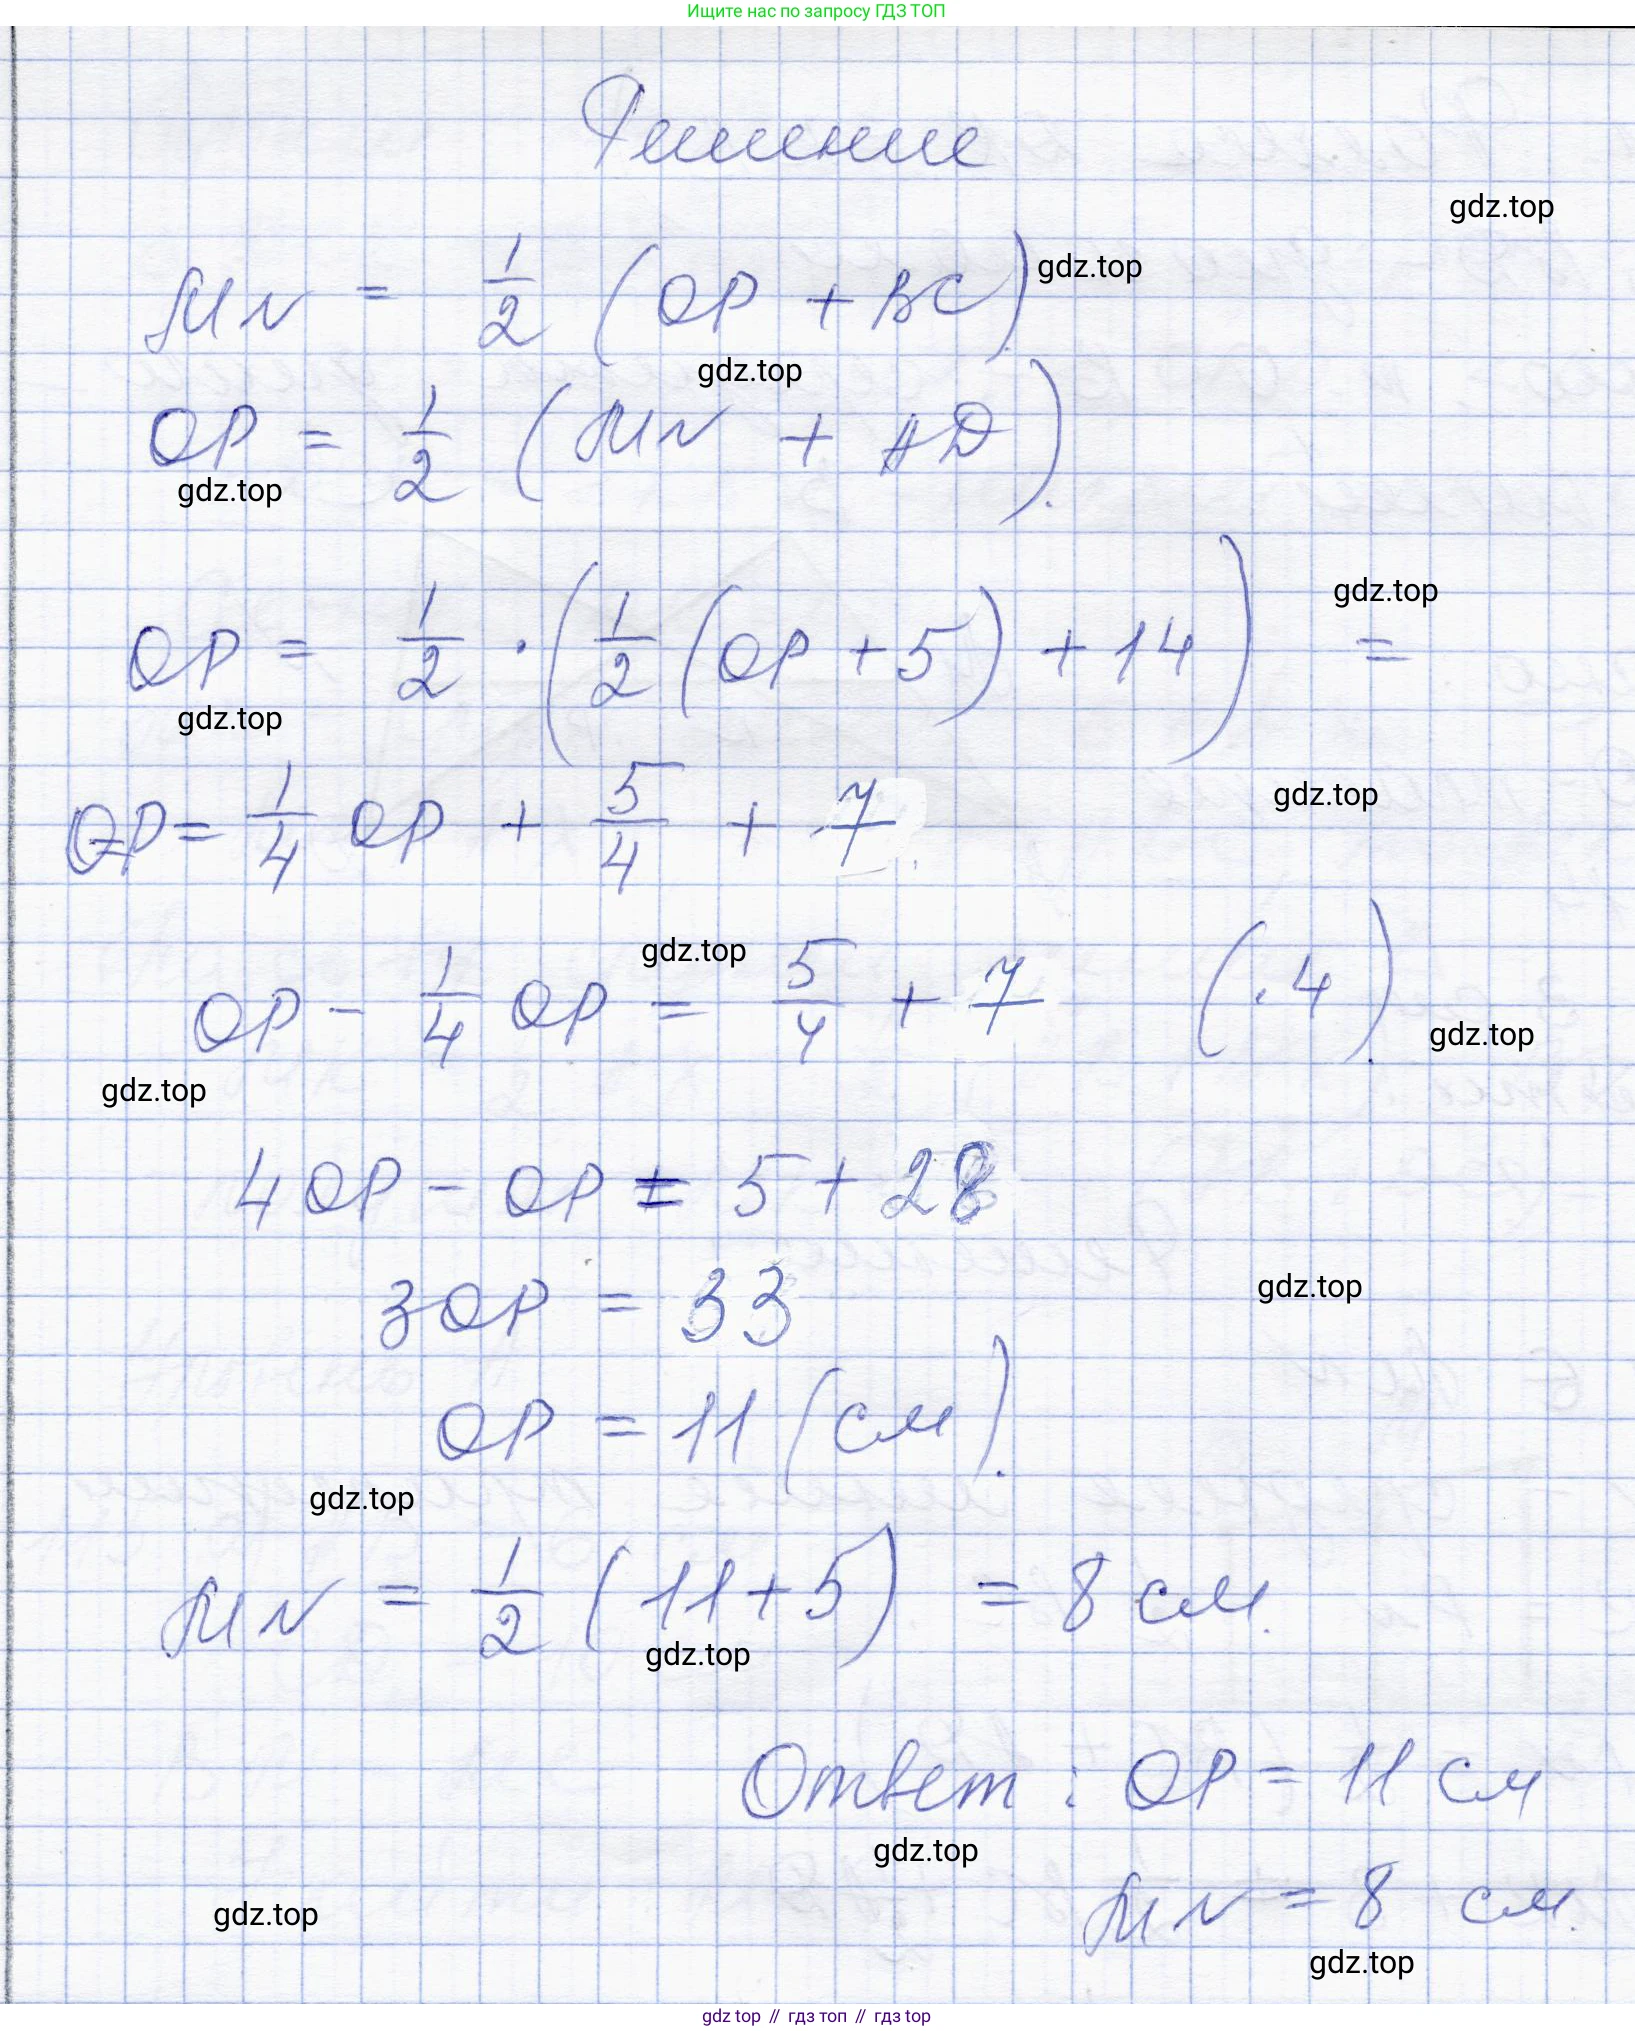 Ищите нас по запросу ГДЗ ТОП
Решение
gdz.top
MN = 1/2 (OP + BC).
gdz.top
gdz.top
OP = 1/2 (MN + AD).
gdz.top
OP = 1/2 · (1/2 (OP + 5) + 14) =
gdz.top
gdz.top
OP = 1/4 OP + 5/4 + 7.
gdz.top
gdz.top
OP - 1/4 OP = 5/4 + 7 (·4).
gdz.top
gdz.top
4OP - OP = 5 + 28
3OP = 33
gdz.top
OP = 11 (см).
gdz.top
MN = 1/2 (11 + 5) = 8 см.
gdz.top
Ответ: OP = 11 см
gdz.top
MN = 8 см.
gdz.top
gdz.top
gdz top // гдз топ // гдз top